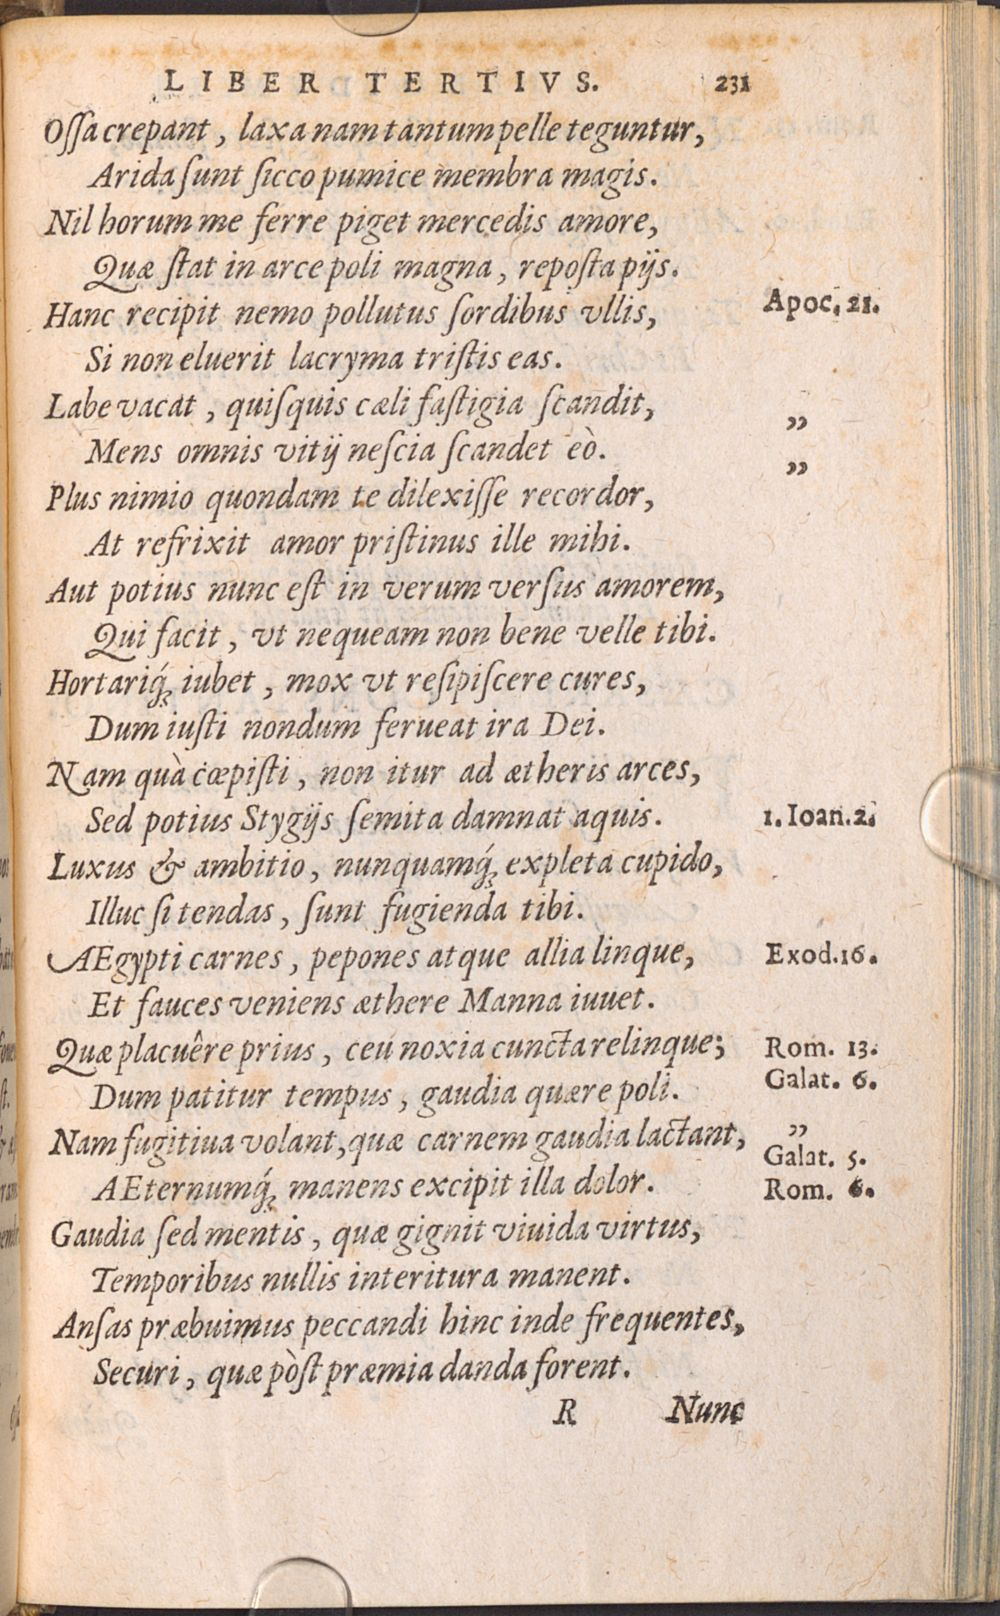 LIBER TERTIVS. 231
Ossa crepant, laxa nam tantum pelle teguntur,
Arida sunt sicco pumice membra magis.
Nil horum me ferre piget mercedis amore,
Quæ stat in arce poli magna, reposta pijs.
Hanc recipit nemo pollutus sordibus vllis, Apoc. 21.
Si non eluerit lacryma tristis eas.
Labe vacat, quisquis cæli fastigia scandit, ,,
Mens omnis vitij nescia scandet eò. ,,
Plus nimio quondam te dilexisse recordor,
At refrixit amor pristinus ille mihi.
Aut potius nunc est in verum versus amorem,
Qui facit, vt nequeam non bene velle tibi.
Hortariq́; iubet, mox vt resipiscere cures,
Dum iusti nondum ferueat ira Dei.
Nam quà cœpisti, non itur ad ætheris arces,
Sed potius Stygijs semita damnat aquis. 1. Ioan. 2.
Luxus & ambitio, nunquamq́; expleta cupido,
Illuc si tendas, sunt fugienda tibi.
AEgypti carnes, pepones atque allia linque, Exod. 16.
Et fauces veniens æthere Manna iuuet.
Quæ placuêre prius, ceu noxia cuncta relinque; Rom. 13.
Dum patitur tempus, gaudia quære poli. Galat. 6.
Nam fugitiua volant, quæ carnem gaudia lactant, ,,
Galat. 5.
AEternumq́; manens excipit illa dolor. Rom. 6.
Gaudia sed mentis, quæ gignit viuida virtus,
Temporibus nullis interitura manent.
Ansas præbuimus peccandi hinc inde frequentes,
Securi, quæ pòst præmia danda forent.
R Nunc